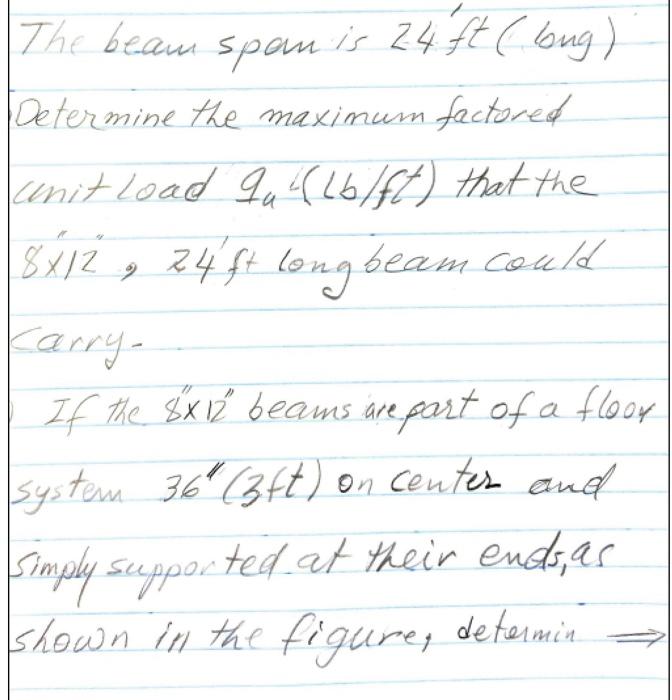 The beam span is 24' ft (long)
Determine the maximum factored
unit load qu (lb/ft) that the
8"x12", 24' ft long beam could
carry.
) If the 8"x12" beams are part of a floor
system 36" (3ft) on center and
simply supported at their ends, as
shown in the figure, determin ⇒